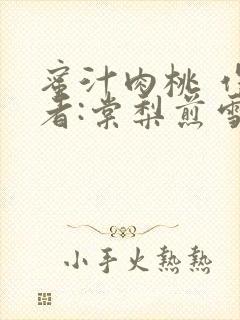 蜜汁肉桃
者:棠梨煎
小手火熱熱